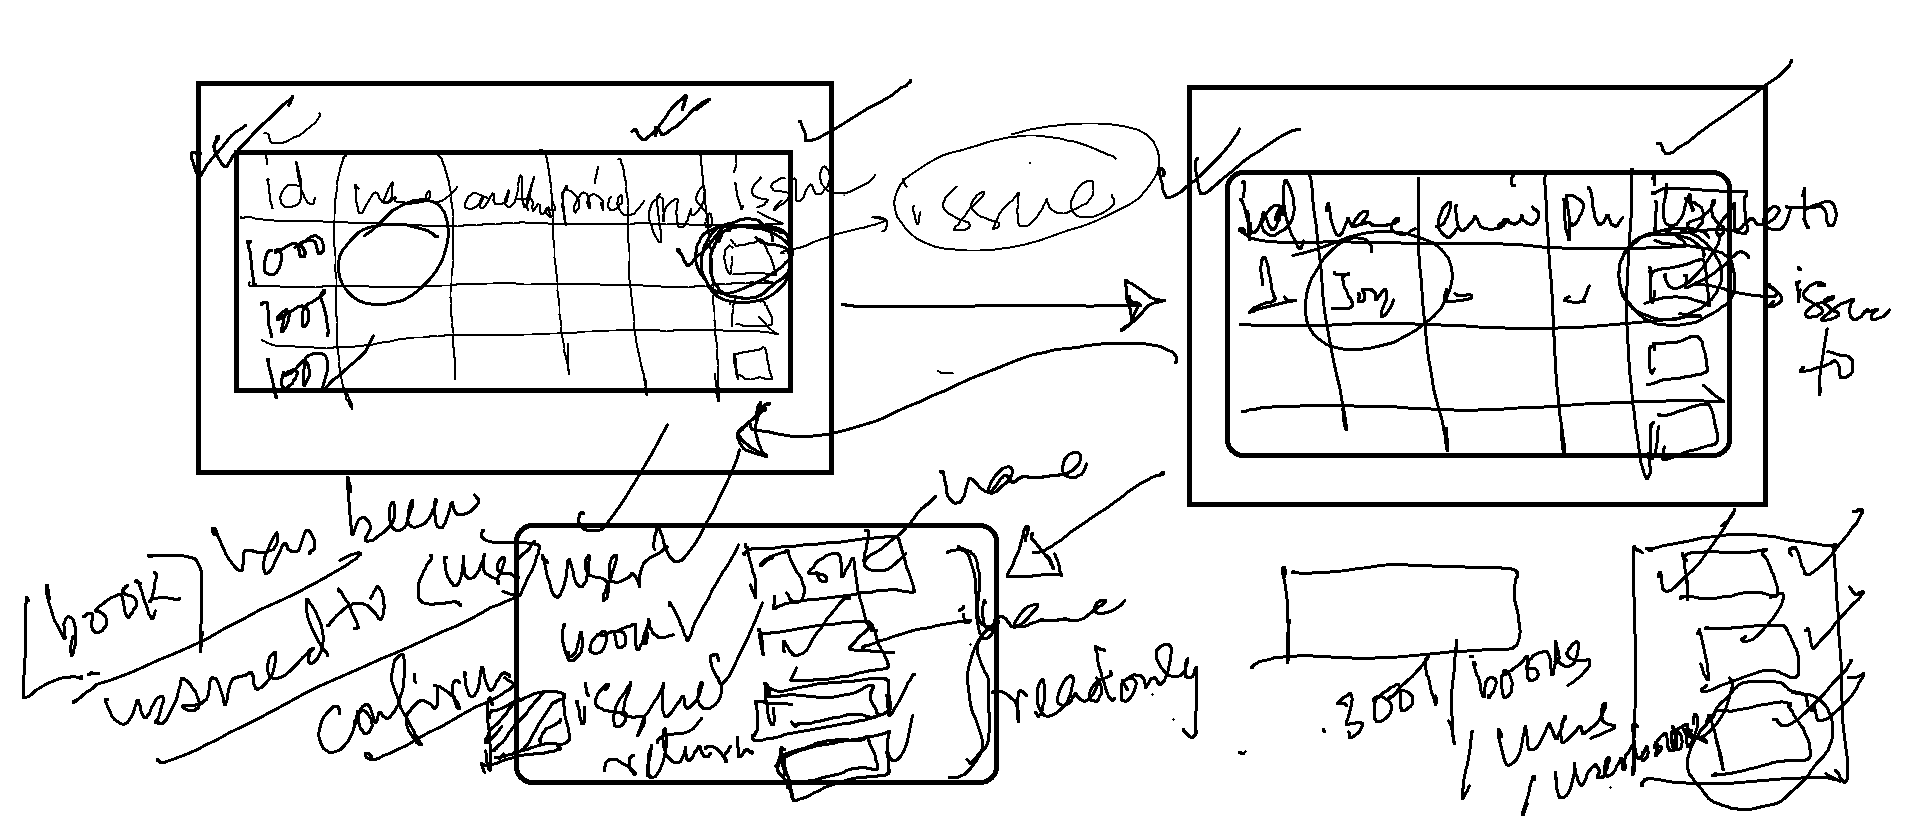 id name author price pub issue
1000
1001
1002
issue
id name email ph issue to
1 Joy
issue
to
name
[book] has been
issued to (user)
confirm
user Joy
book name
issue
return
readonly
3001 / books
/ users
/ userbook